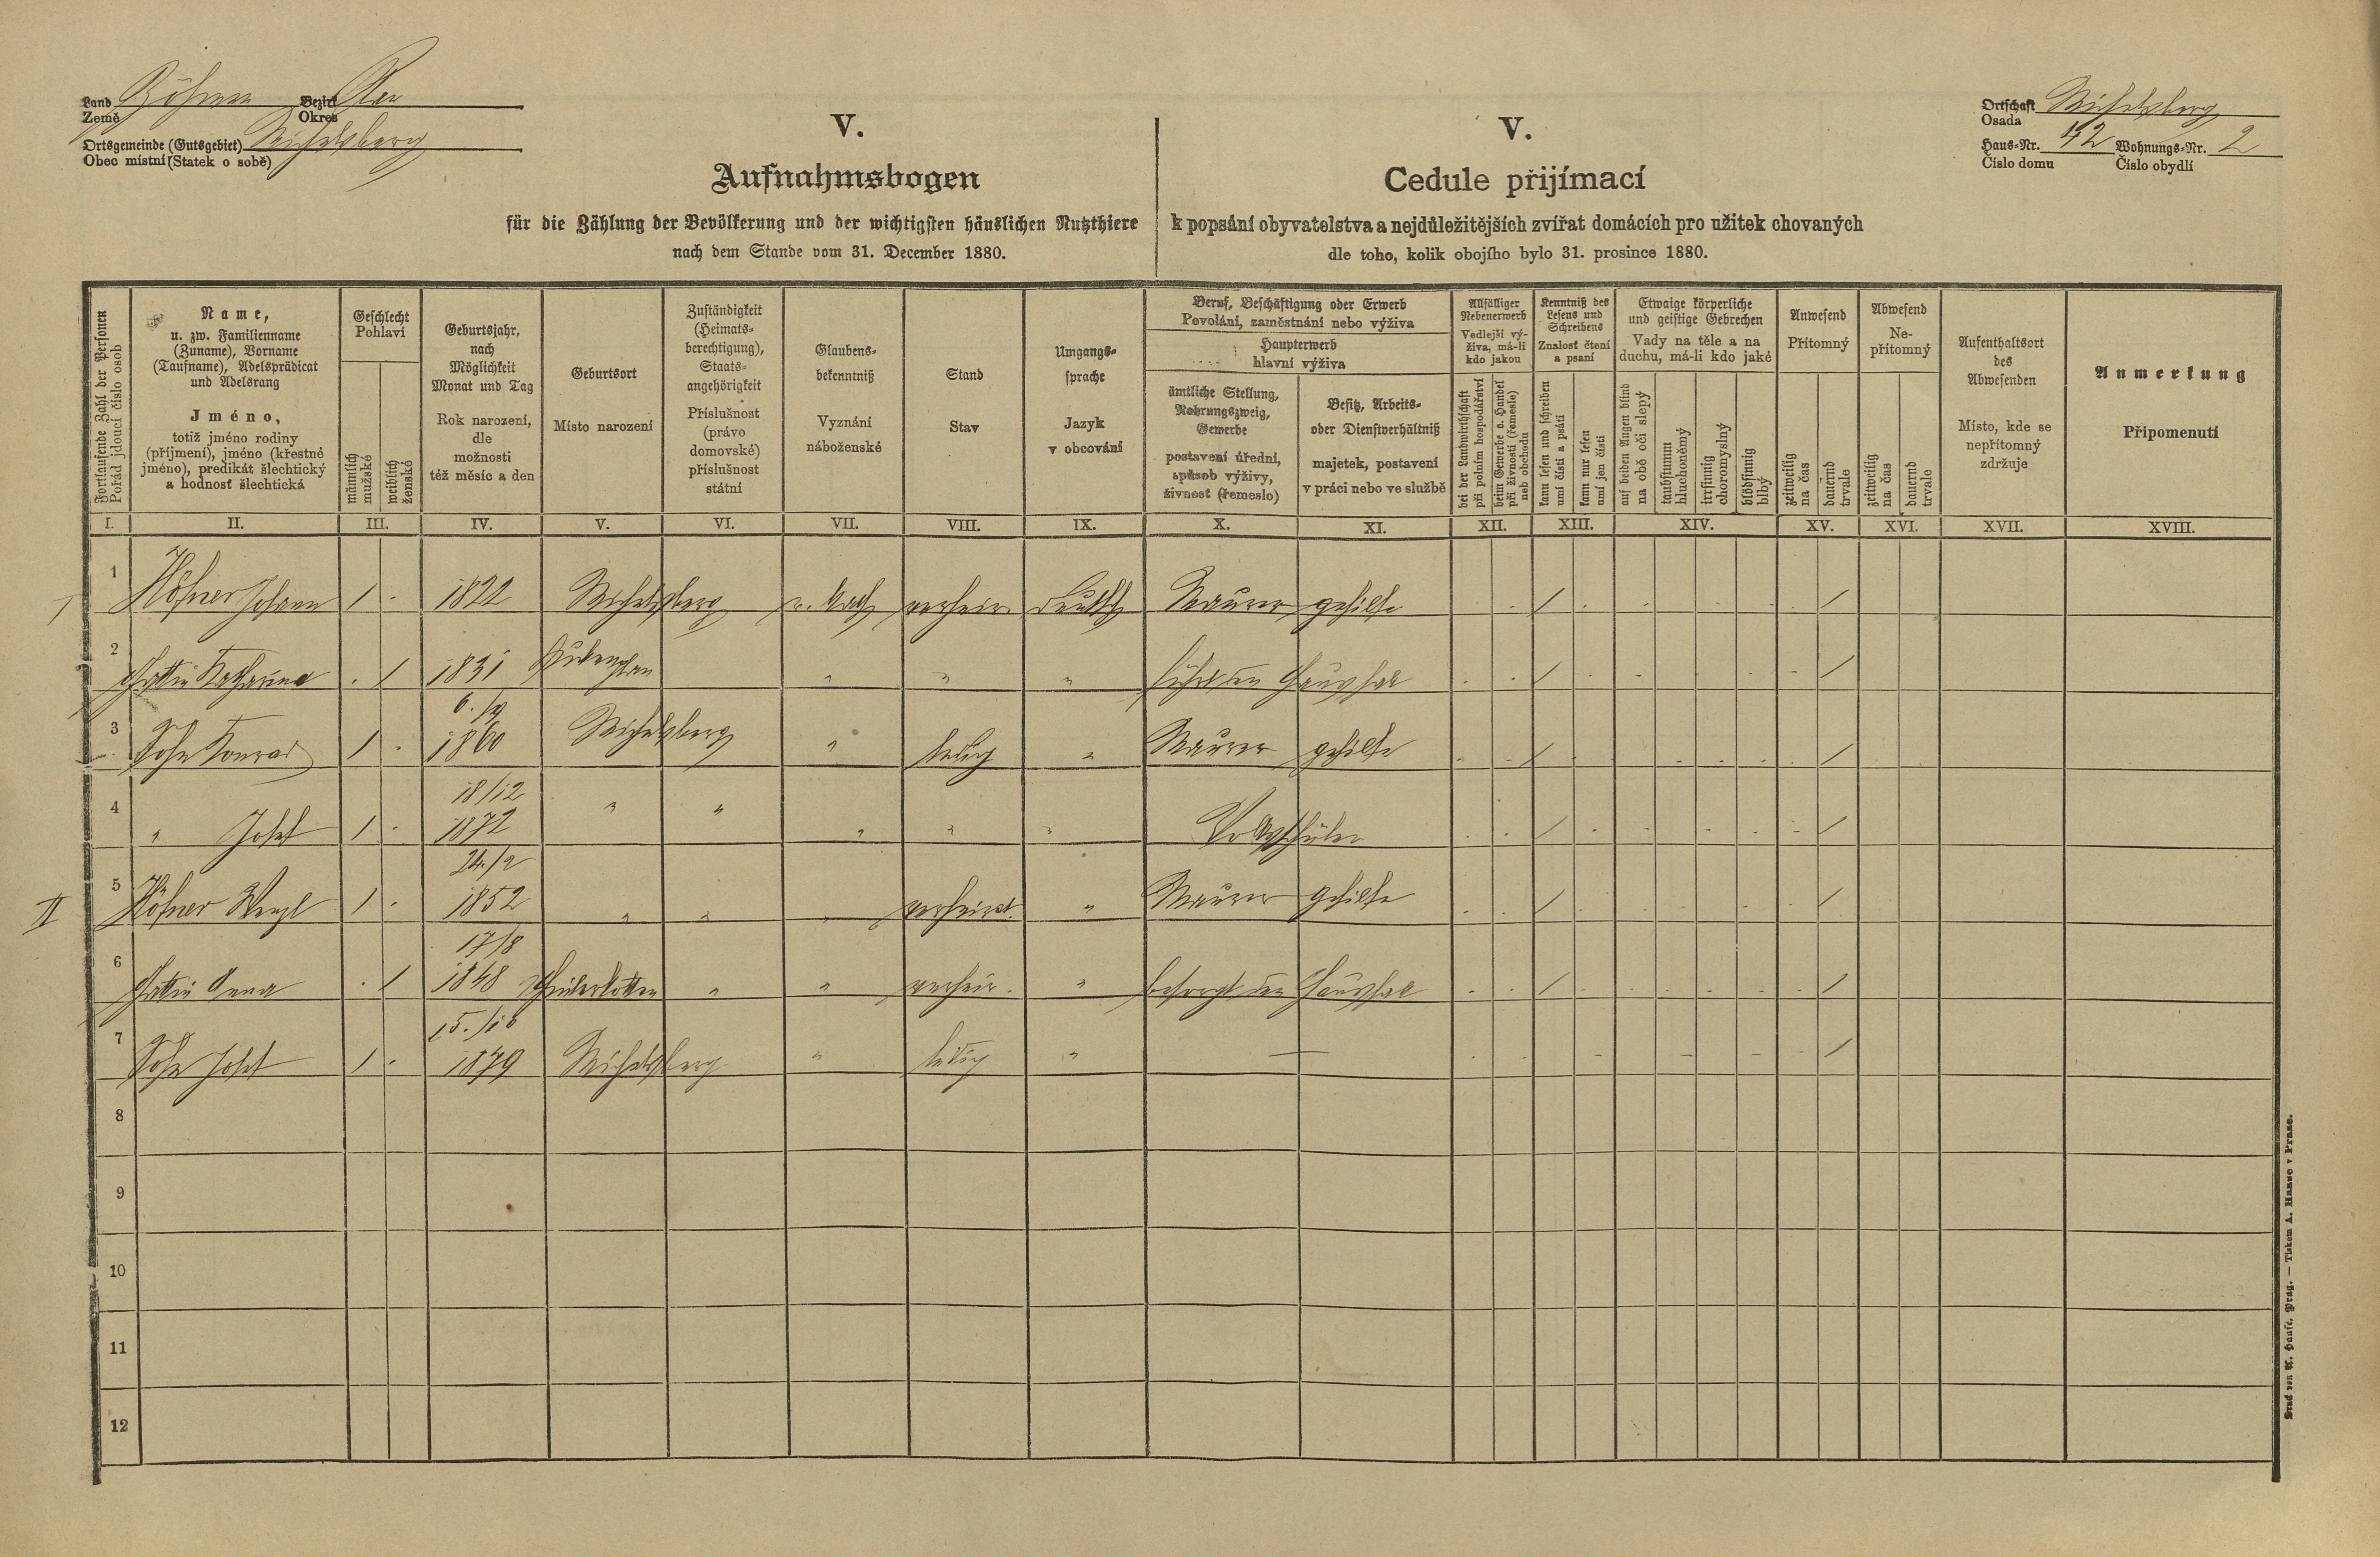 Land Böhmen Bezirk Plan
Země Okres
Ortsgemeinde (Gutsgebiet) Michelsberg
Obec místní (Statek o sobě)
V.
Aufnahmsbogen
für die Zählung der Bevölkerung und der wichtigsten häuslichen Nutzthiere
nach dem Stande vom 31. December 1880.
V.
Cedule přijímací
k popsání obyvatelstva a nejdůležitějších zvířat domácích pro užitek chovaných
dle toho, kolik obojího bylo 31. prosince 1880.
Ortschaft Michelsberg
Osada
Haus-Nr. 42 Wohnungs-Nr. 2
Číslo domu Číslo obydlí
Fortlaufende Zahl der Personen
Pořád jdoucí číslo osob
Name,
u. zw. Familienname
(Zuname), Vorname
(Taufname), Adelsprädicat
und Adelsrang
Jméno,
totiž jméno rodiny
(příjmení), jméno (křestné
jméno), predikát šlechtický
a hodnost šlechtická
Geschlecht
Pohlaví
männlich
mužské
weiblich
ženské
Geburtsjahr,
nach
Möglichkeit
Monat und Tag
Rok narození,
dle
možnosti
též měsíc a den
Geburtsort
Místo narození
Zuständigkeit
(Heimats-
berechtigung),
Staats-
angehörigkeit
Příslušnost
(právo
domovské)
příslušnost
státní
Glaubens-
bekenntniß
Vyznání
náboženské
Stand
Stav
Umgangs-
sprache
Jazyk
v obcování
Beruf, Beschäftigung oder Erwerb
Povolání, zaměstnání nebo výživa
Haupterwerb
hlavní výživa
ämtliche Stellung,
Nahrungszweig,
Gewerbe
postavení úřední,
spůsob výživy,
živnost (řemeslo)
Besitz, Arbeits-
oder Dienstverhältniß
majetek, postavení
v práci nebo ve službě
Allfälliger
Nebenerwerb
Vedlejší vý-
živa, má-li
kdo jakou
bei der Landwirthschaft
při polním hospodářství
beim Gewerbe o. Handel
při živnosti (řemesle)
neb obchodu
Kenntniß des
Lesens und
Schreibens
Znalost čtení
a psaní
kann lesen und schreiben
umí čísti a psáti
kann nur lesen
umí jen čísti
Etwaige körperliche
und geistige Gebrechen
Vady na těle a na
duchu, má-li kdo jaké
auf beiden Augen blind
na obě oči slepý
taubstumm
hluchoněmý
irrsinnig
choromyslný
blödsinnig
blbý
Anwesend
Přítomný
zeitweilig
na čas
dauernd
trvale
Abwesend
Ne-
přítomný
zeitweilig
na čas
dauernd
trvale
Aufenthaltsort
des
Abwesenden
Místo, kde se
nepřítomný
zdržuje
Anmerkung
Připomenutí
I. II. III. IV. V. VI. VII. VIII. IX. X. XI. XII. XIII. XIV. XV. XVI. XVII. XVIII.
I 1 Höfner Johann 1 - 1822 Michelsberg r. kath verheir. deutsch Maurer gehilfe
2 Gattin Katharina - 1 1831 " " " führt den Haushalt
3 Sohn Konrad 1 - 1860 Michelsberg " ledig " Maurer gehilfe
18/12
4 " Josef 1 - 1872 " " " " " Volksschüler
24./2
II 5 Höfner Wenzl 1 - 1852 " " " verheirat. " Maurer gehilfe
17/8
6 Gattin Anna - 1 1848 " " verheir. " besorgt den Haushalt
15./10
7 Sohn Josef 1 - 1879 Michelsberg " ledig " —
8
9
10
11
12
Druck von A. Haase, Prag. — Tiskem A. Haase v Praze.